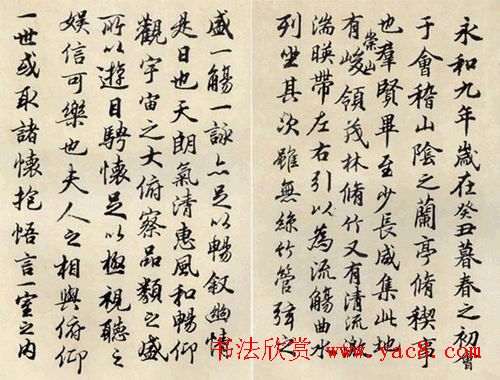 永和九年歲在癸丑暮春之初會
于會稽山陰之蘭亭脩禊事
也羣賢畢至少長咸集此地
有崇山峻領茂林脩竹又有清流激
湍暎帶左右引以為流觴曲水
列坐其次雖無絲竹管弦之
盛一觴一詠亦足以暢敘幽情
是日也天朗氣清惠風和暢仰
觀宇宙之大俯察品類之盛
所以遊目騁懷足以極視聽之
娛信可樂也夫人之相與俯仰
一世或取諸懷抱悟言一室之內
书法欣赏 www.yac8.com